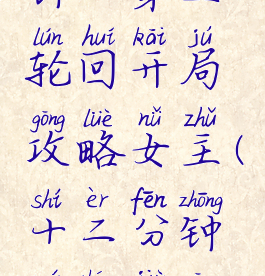 lún huí kāi jú
轮回开局
gōng lüè nǚ zhǔ
攻略女主(
shí èr fēn zhōng
十二分钟